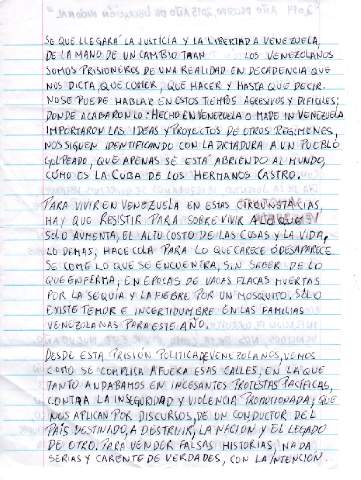 SE QUE LLEGARÁ LA JUSTICIA Y LA LIBERTAD A VENEZUELA,
DE LA MANO DE UN CAMBIO LOS VENEZOLANOS
SOMOS PRISIONEROS DE UNA REALIDAD EN DECADENCIA QUE
NOS DICTA, QUE COMER, QUE HACER Y HASTA QUE DECIR.
NO SE PUEDE HABLAR EN ESTOS TIEMPOS AGRESIVOS Y DIFICILES;
DONDE ACABARON LO: HECHO EN VENEZUELA O MADE IN VENEZUELA
IMPORTARON LAS IDEAS Y PROYECTOS DE OTROS REGIMENES,
NOS SIGUEN IDENTIFICANDO CON LA DICTADURA A UN PUEBLO
GOLPEADO, QUE APENAS SE ESTÁ ABRIENDO AL MUNDO,
CÓMO ES LA CUBA DE LOS HERMANOS CASTRO.
PARA VIVIR EN VENEZUELA EN ESTAS CIRCUNSTANCIAS,
HAY QUE RESISTIR PARA SOBREVIVIR A LO QUE
SOLO AUMENTA, EL ALTO COSTO DE LAS COSAS Y LA VIDA,
LO DEMAS; HACE COLA PARA LO QUE CARECE Ó DESAPARECE
SE COME LO QUE SE ENCUENTRA, SIN SABER DE LO
QUE ENFERMA; EN EPOCAS DE VACAS FLACAS MUERTAS
POR LA SEQUIA Y LA FIEBRE POR UN MOSQUITO. SOLO
EXISTE TEMOR E INCERTIDUMBRE EN LAS FAMILIAS
VENEZOLANAS PARA ESTE AÑO.
DESDE ESTA PRISIÓN POLITICA DE VENEZOLANOS, VEMOS
COMO SE COMPLICA AFUERA ESAS CALLES, EN LA QUE
TANTO ANDABAMOS EN INCESANTES PROTESTAS PACIFICAS,
CONTRA LA INSEGURIDAD Y VIOLENCIA PROMOCIONADA; QUE
NOS APLICAN POR DISCURSOS, DE UN CONDUCTOR DEL
PAÍS DESTINADO, A DESTRUIR, LA NACIÓN Y EL LEGADO
DE OTRO. PARA VENDER FALSAS HISTORIAS, NADA
SERIAS Y CARENTE DE VERDADES, CON LA INTENCIÓN